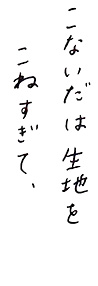 こないだは生地を
こねすぎて、